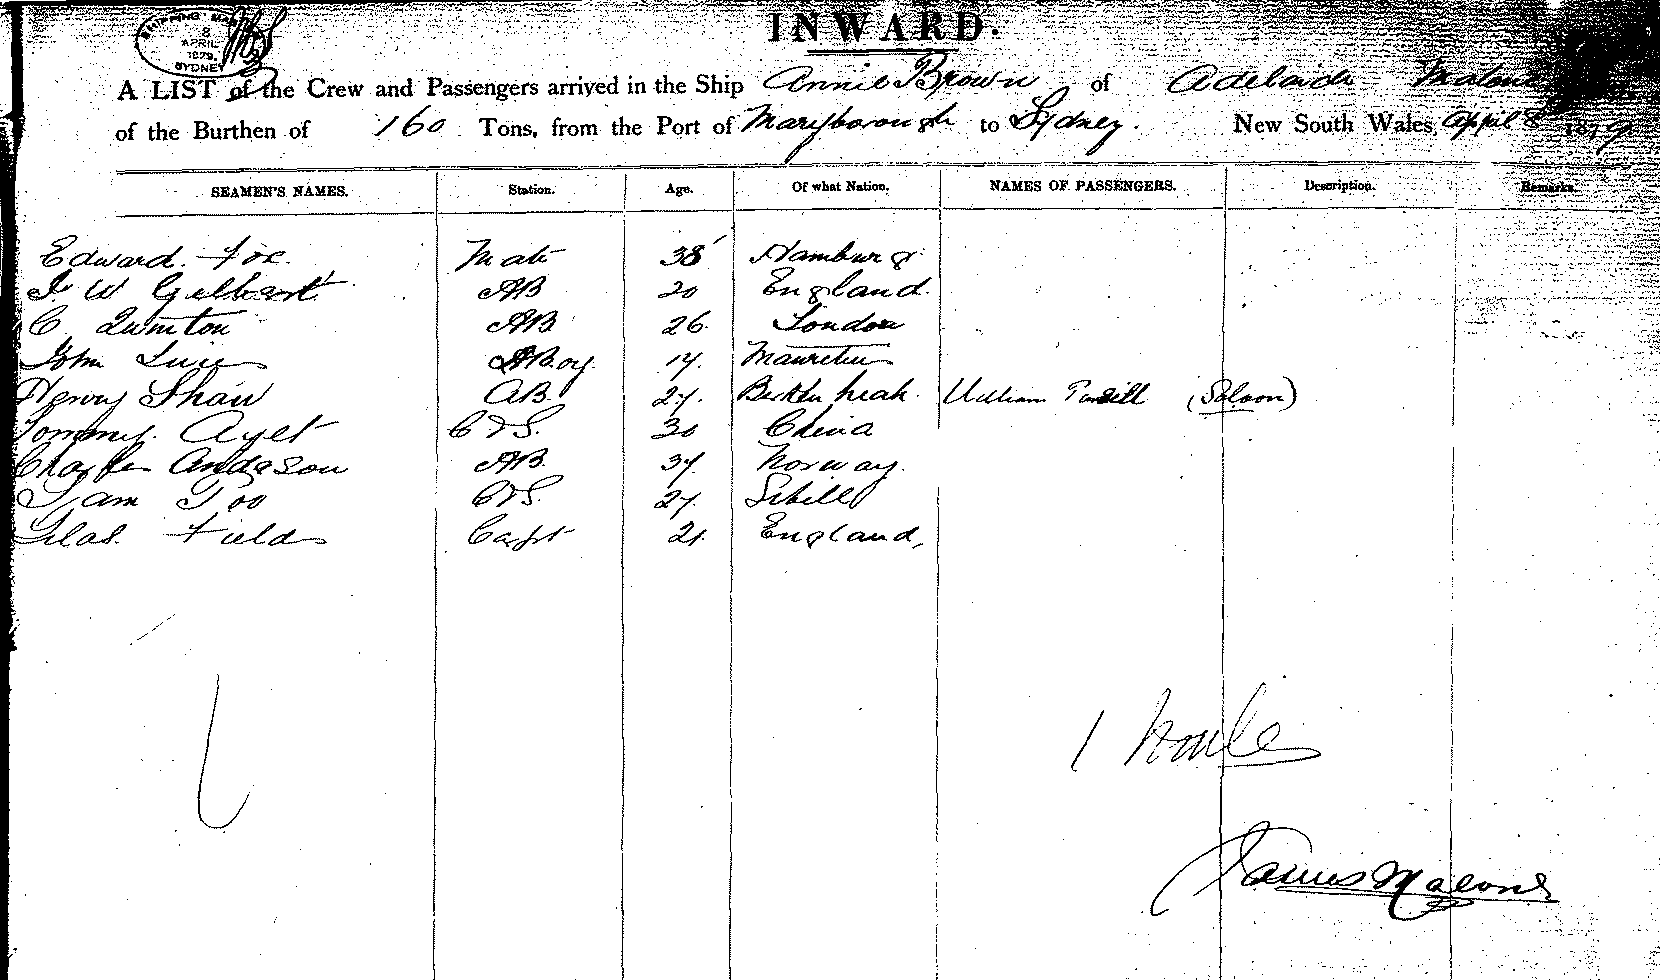 SHIPPING MAS
8
APRIL
1879
SYDNEY
INWARD.
A LIST of the Crew and Passengers arrived in the Ship Annie Brown of Adelaide Malone
of the Burthen of 160 Tons, from the Port of Maryborough to Sydney. New South Wales, April 8 1879
SEAMEN'S NAMES. Station. Age. Of what Nation. NAMES OF PASSENGERS. Description. Remarks.
Edward Mate 38 Hamburg
W AB 20 England
C Quinton AB 26 London
John ABoy 17
Henry Shaw AB 27 William (Saloon)
Tommy C&S. 30 China
Anderson AB 37 Norway.
C&S. 27
Silas Fields 21 England,
1
James Malone